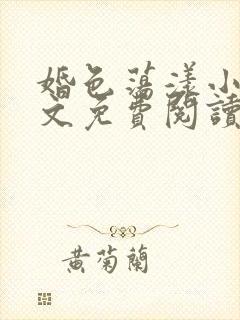 婚色蕩漾小
文免費閱讀
黄菊蘭